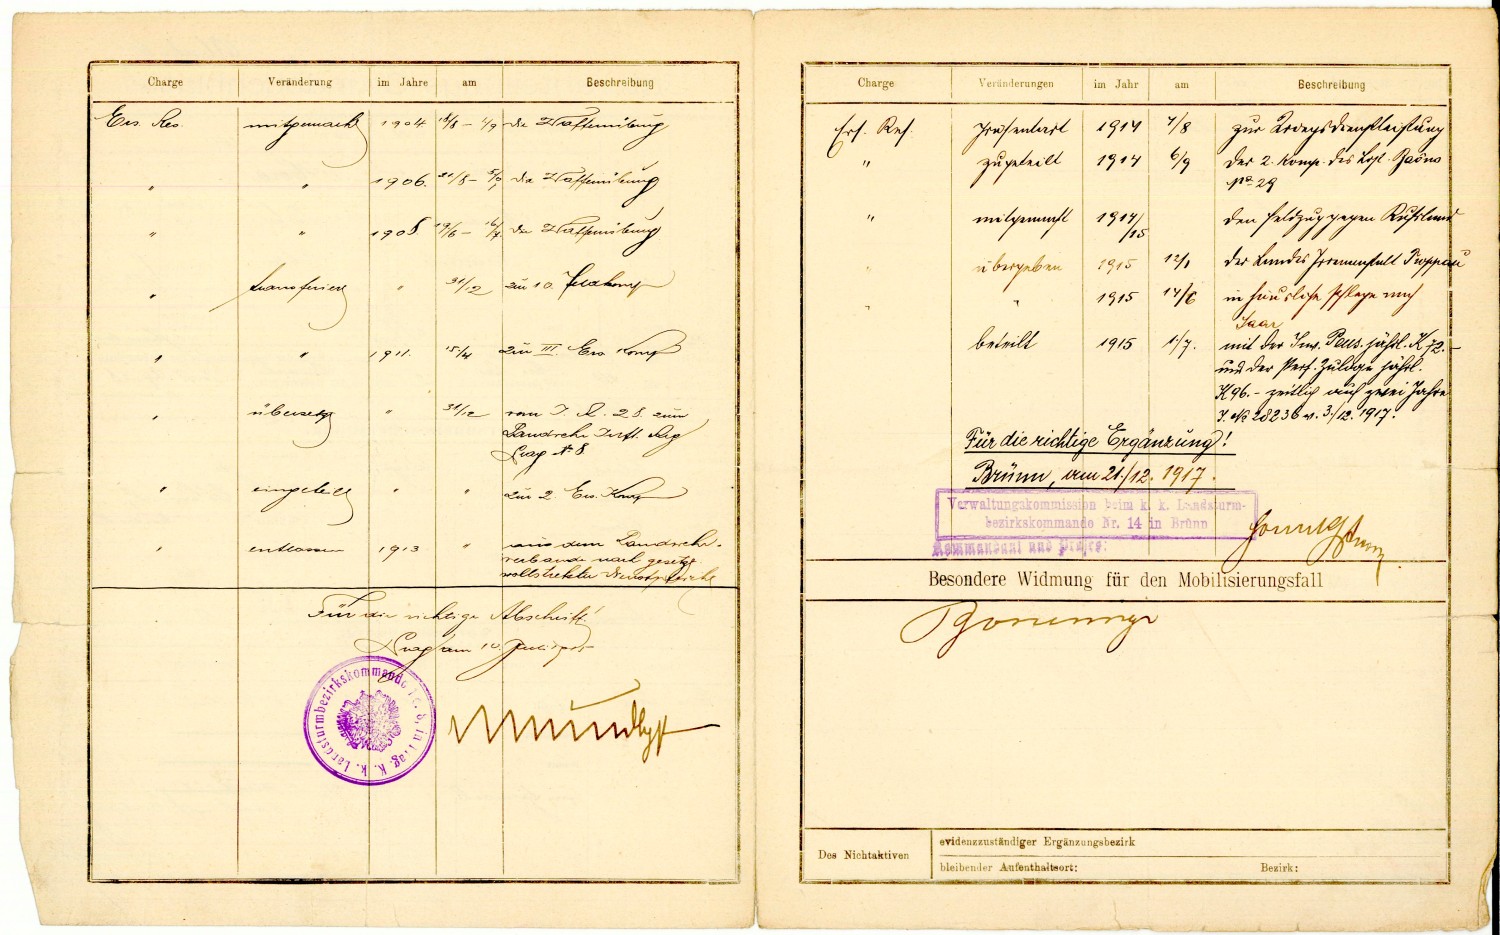 Charge Veränderung im Jahre am Beschreibung
Ers. Res mitgemacht 1904 die Waffenübung
" " 1906. 31/8 – die Waffenübung
" " 1908 – die Waffenübung
" transferiert " 31/12 zur 10. Feldkomp
" " 1911. 15/4 zur III. Ers. Komp
" übersetzt " 31/12 vom I. R. 28 zum
Landwehr Inft. Reg
Prag Nr 8.
" eingeteilt " " zur 2. Ers. Komp
" entlassen 1913 " aus dem Landwehr-
verbande nach gesetz-
vollstreckter Dienstpflicht
Für die richtige Abschrift!
Prag am 10. Juli
Landsturmbezirkskommando
Charge Veränderungen im Jahr am Beschreibung
Ers. Res. präsentiert 1914 1/8 zur Kriegsdienstleistung
" zugeteilt 1914 6/9 der 2. Komp. des Lst.
No 29
" mitgemacht 1914/15 den Feldzug gegen Russland
" übergeben 1915 12/1 der Landes Irrenanstalt
" " 1915 14/6 in häusliche Pflege nach
Saar
beteilt 1915 1/7. mit der Inv. Pens. jährl. K 72.–
und der Pers. Zulage jährl.
K 96.– zeitlich auf zwei Jahre
J. No 28236 v. 3./12. 1917.
Für die richtige Ergänzung!
Brünn, am 21./12. 1917.
Verwaltungskommission beim k. k. Landsturm-
bezirkskommando Nr. 14 in Brünn
Kommandant und Präses:
Besondere Widmung für den Mobilisierungsfall
Des Nichtaktiven
evidenzzuständiger Ergänzungsbezirk
bleibender Aufenthaltsort: Bezirk: